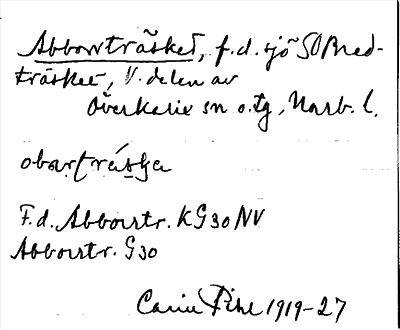 Abborrträsket, f.d. sjö SO Bred-
träsket, V. delen av
Överkalix sn o. tg, Norrb. l.
obart̨rásḱa
F.d. Abborrtr. KG30NV
Abborrtr. G30
Carin Pihl 1919-27